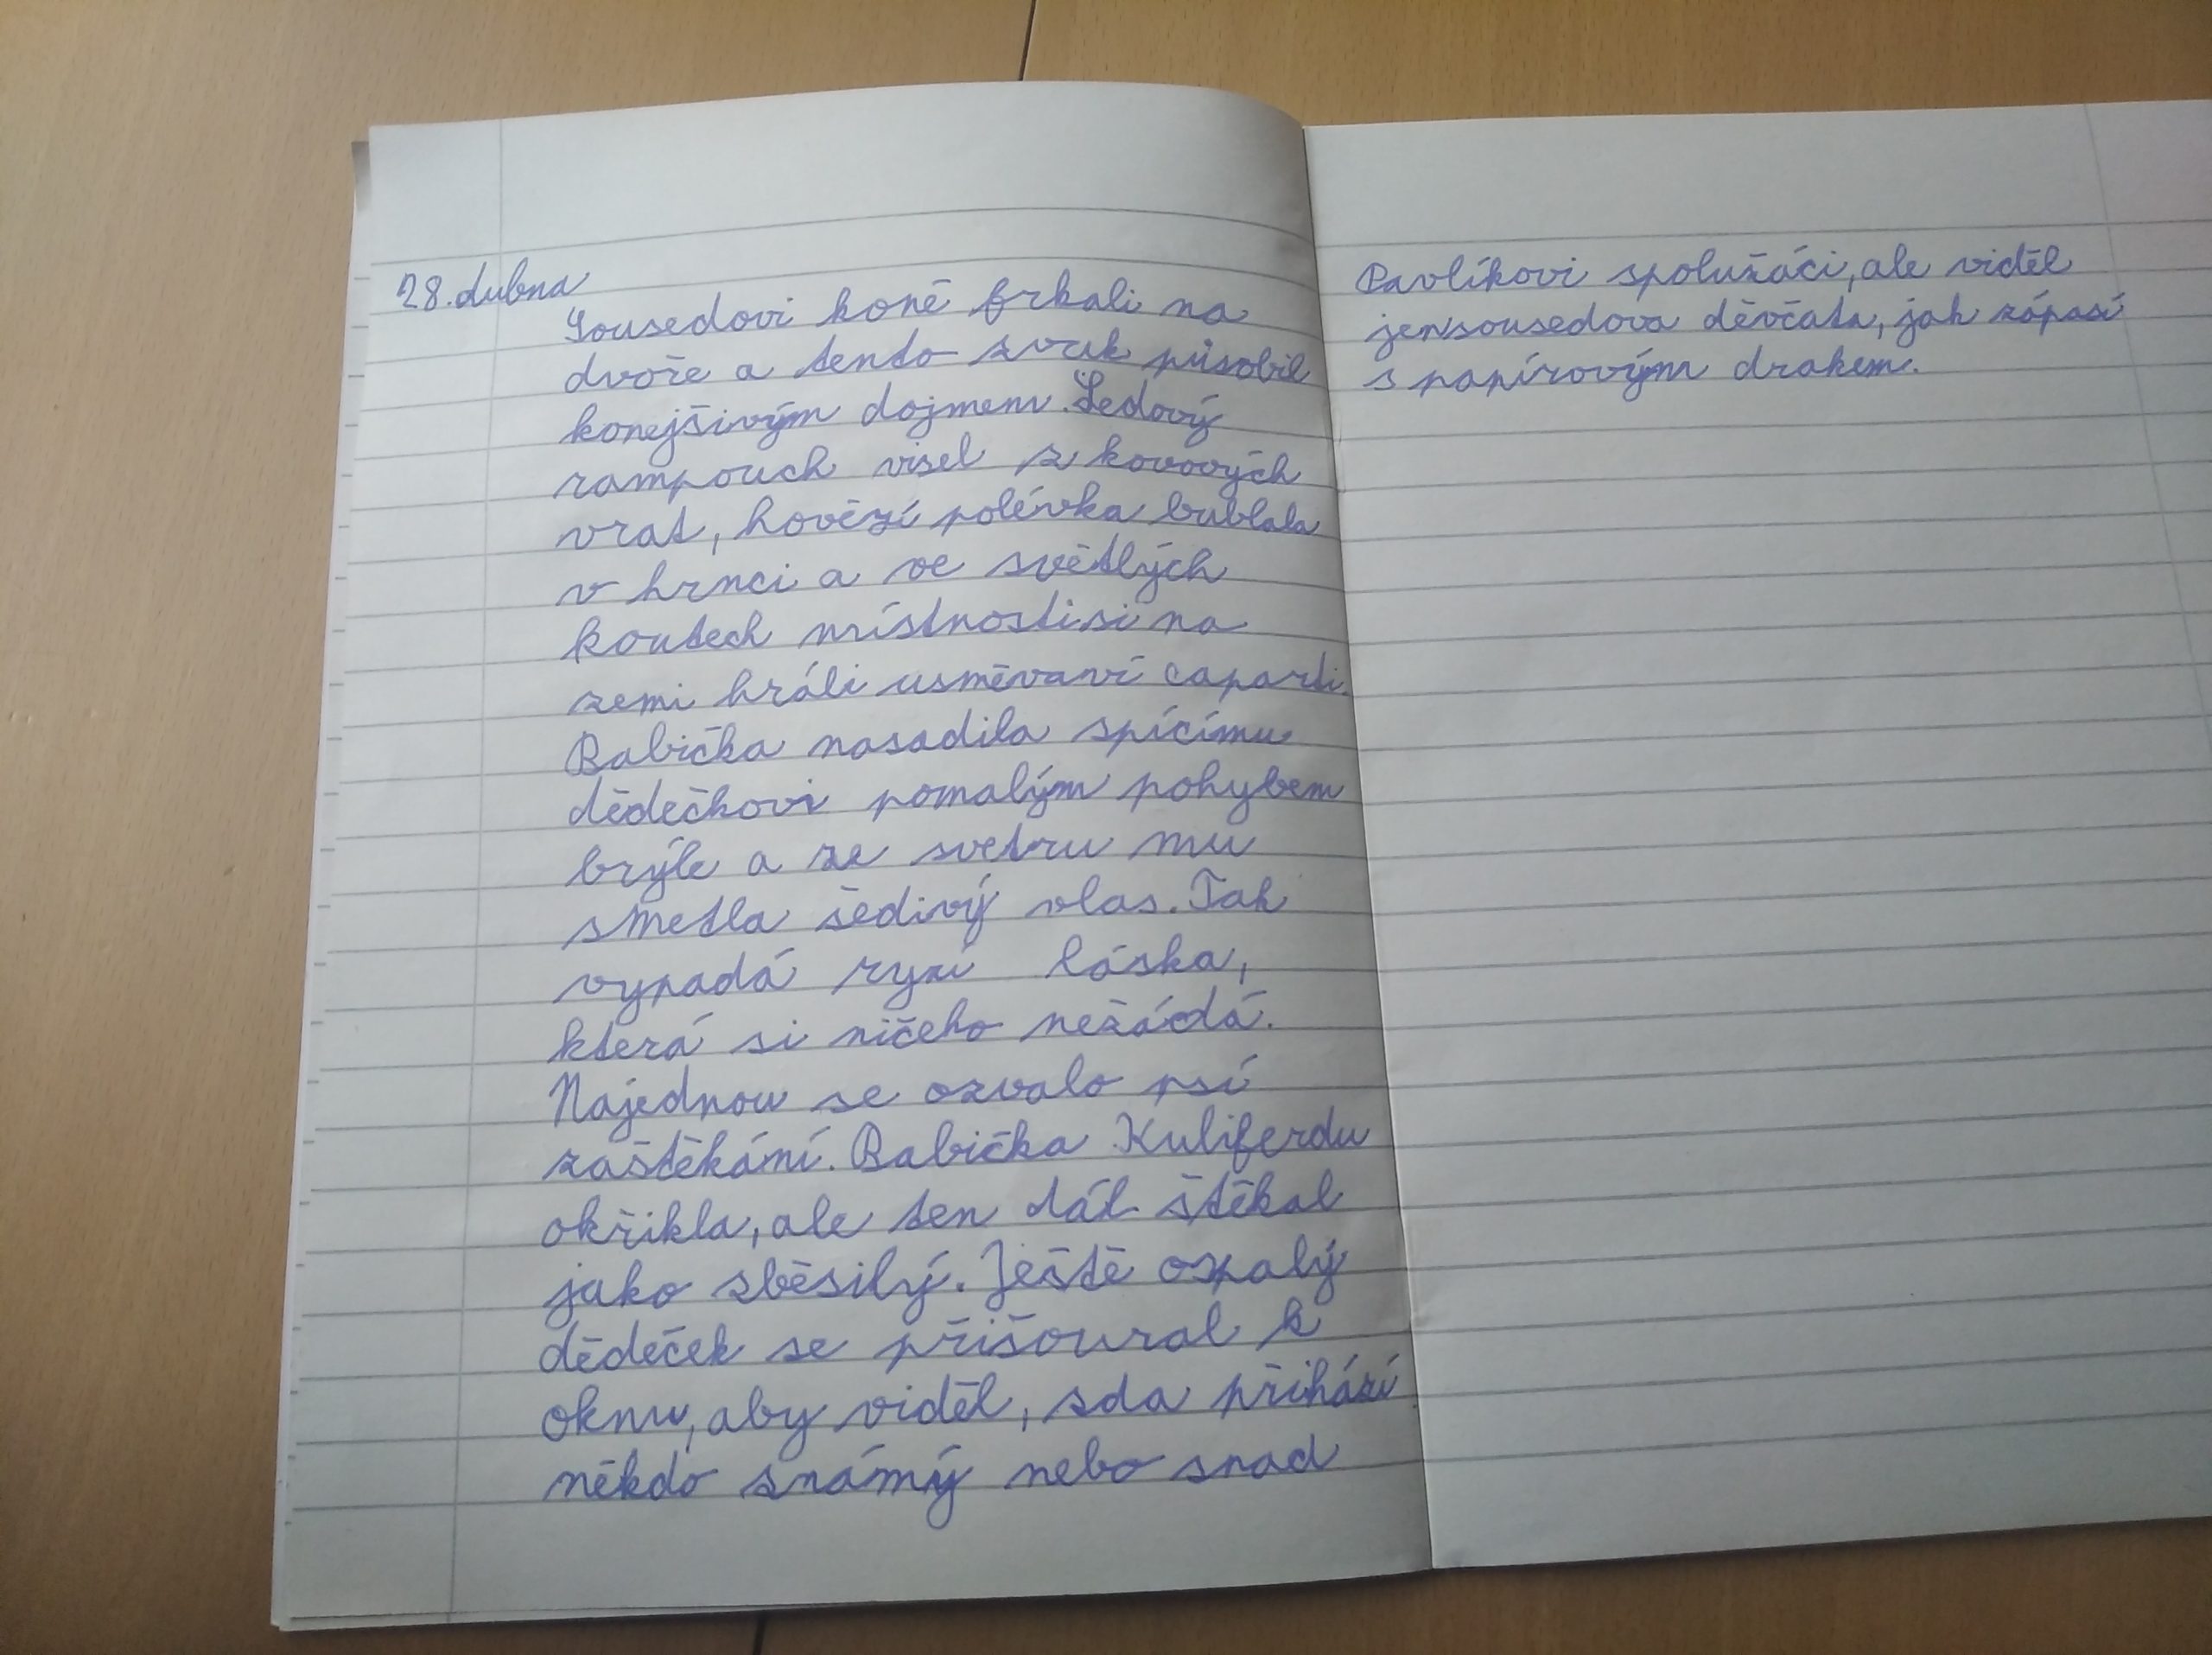 28. dubna
Sousedovi koně frkali na
dvoře a tento zvuk působil
konejšivým dojmem. Ledový
rampouch visel z kovových
vrat, hovězí polévka bublala
v hrnci a ve světlých
koutech místnosti si na
zemi hráli usměvaví caparti.
Babička nasadila spícímu
dědečkovi pomalým pohybem
brýle a ze svetru mu
smetla šedivý vlas. Tak
vypadá ryzí láska,
která si ničeho nežádá.
Najednou se ozvalo psí
zaštěkání. Babička Kuliferdu
okřikla, ale ten dál štěkal
jako zběsilý. Ještě ospalý
dědeček se přišoural k
oknu, aby viděl, zda přihází
někdo známý nebo snad
Pavlíkovi spolužáci, ale viděl
jen sousedova děvčata, jak zápasí
s papírovým drakem.